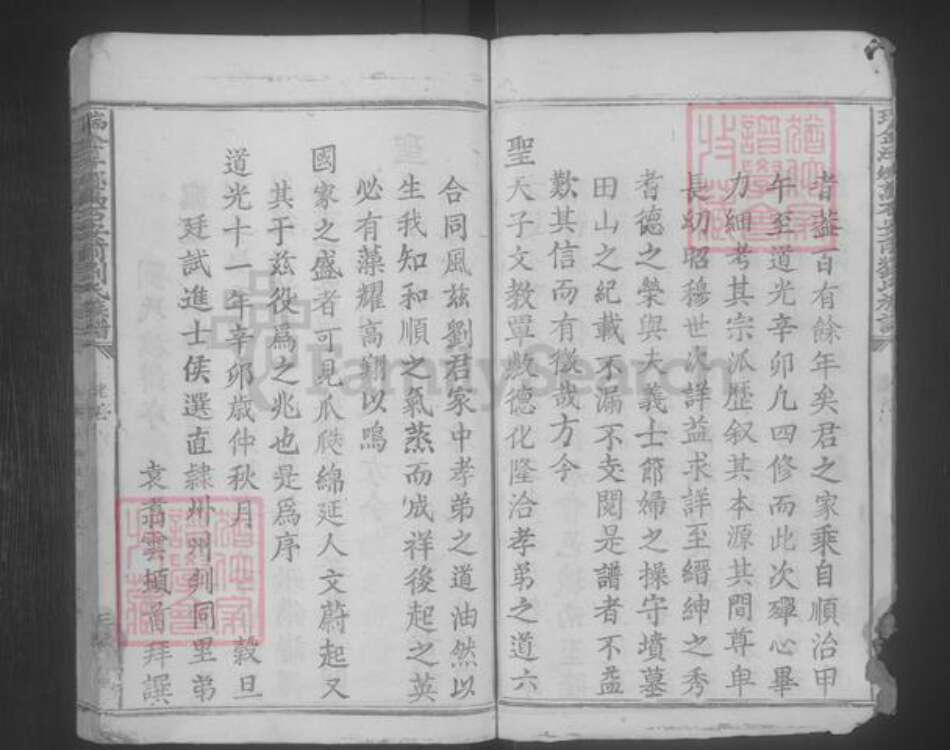 者蓋百有餘年矣君之家乘自順治甲
午至道光辛卯凡四修而此次殫心畢
力細考其宗派歷叙其本源其間尊卑
長幼昭穆世次詳益求詳至縉紳之秀
耆德之榮與夫義士節婦之操守墳墓
田山之紀載不漏不支閱是譜者不益
歎其信而有徵哉方今
聖天子文教覃敷德化隆洽孝弟之道六
合同風兹劉君家中孝弟之道油然以
生我知和順之氣蒸而成祥後起之英
必有藻耀高翔以鳴
國家之盛者可見瓜瓞綿延人文蔚起又
其于兹役爲之兆也是爲序
道光十一年辛卯歲仲秋月 穀旦
廷試進士侯選直隸州州判同里弟
袁翥雲頓首拜譔
FamilySearch